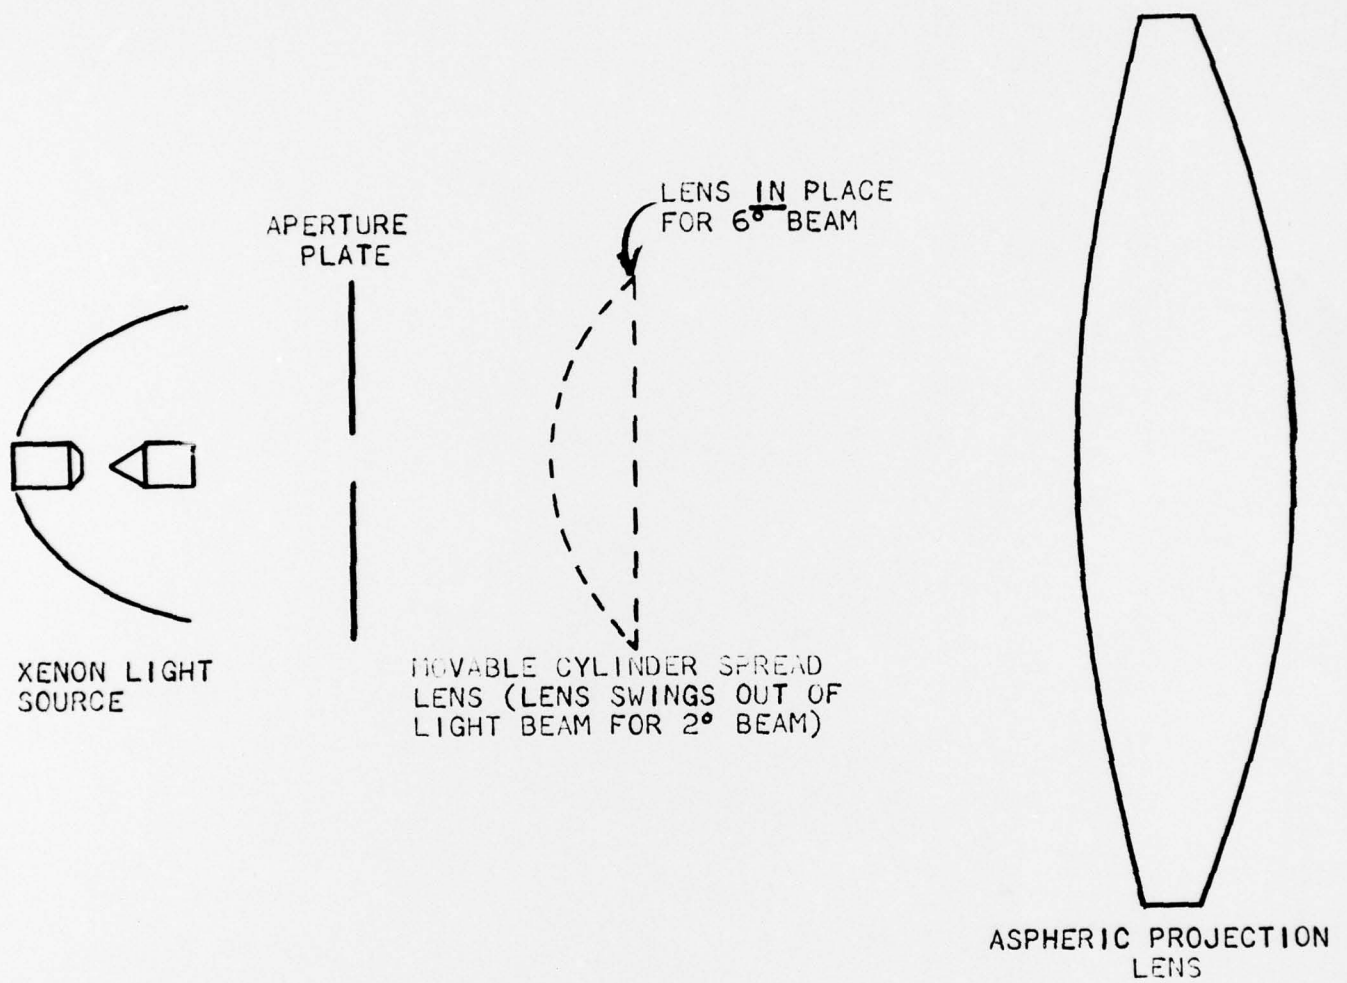 LENS IN PLACE
FOR 6° BEAM
APERTURE
PLATE
XENON LIGHT
SOURCE
MOVABLE CYLINDER SPREAD
LENS (LENS SWINGS OUT OF
LIGHT BEAM FOR 2° BEAM)
ASPHERIC PROJECTION
LENS